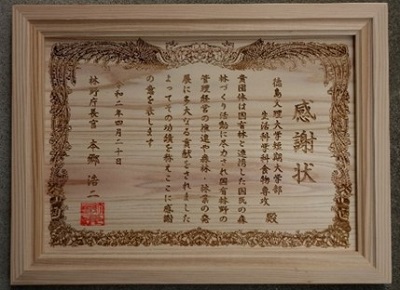 感謝状
徳島文理大学短期大学部
生活科学科食物専攻 殿
貴団体は国有林と連携した国民の森
林づくり活動に尽力され国有林野の
管理経営の推進や森林・林業の発
展に多大なる貢献をされました
よってその功績を称えここに感謝
の意を表します
令和二年四月二十日
林野庁長官 本郷浩二